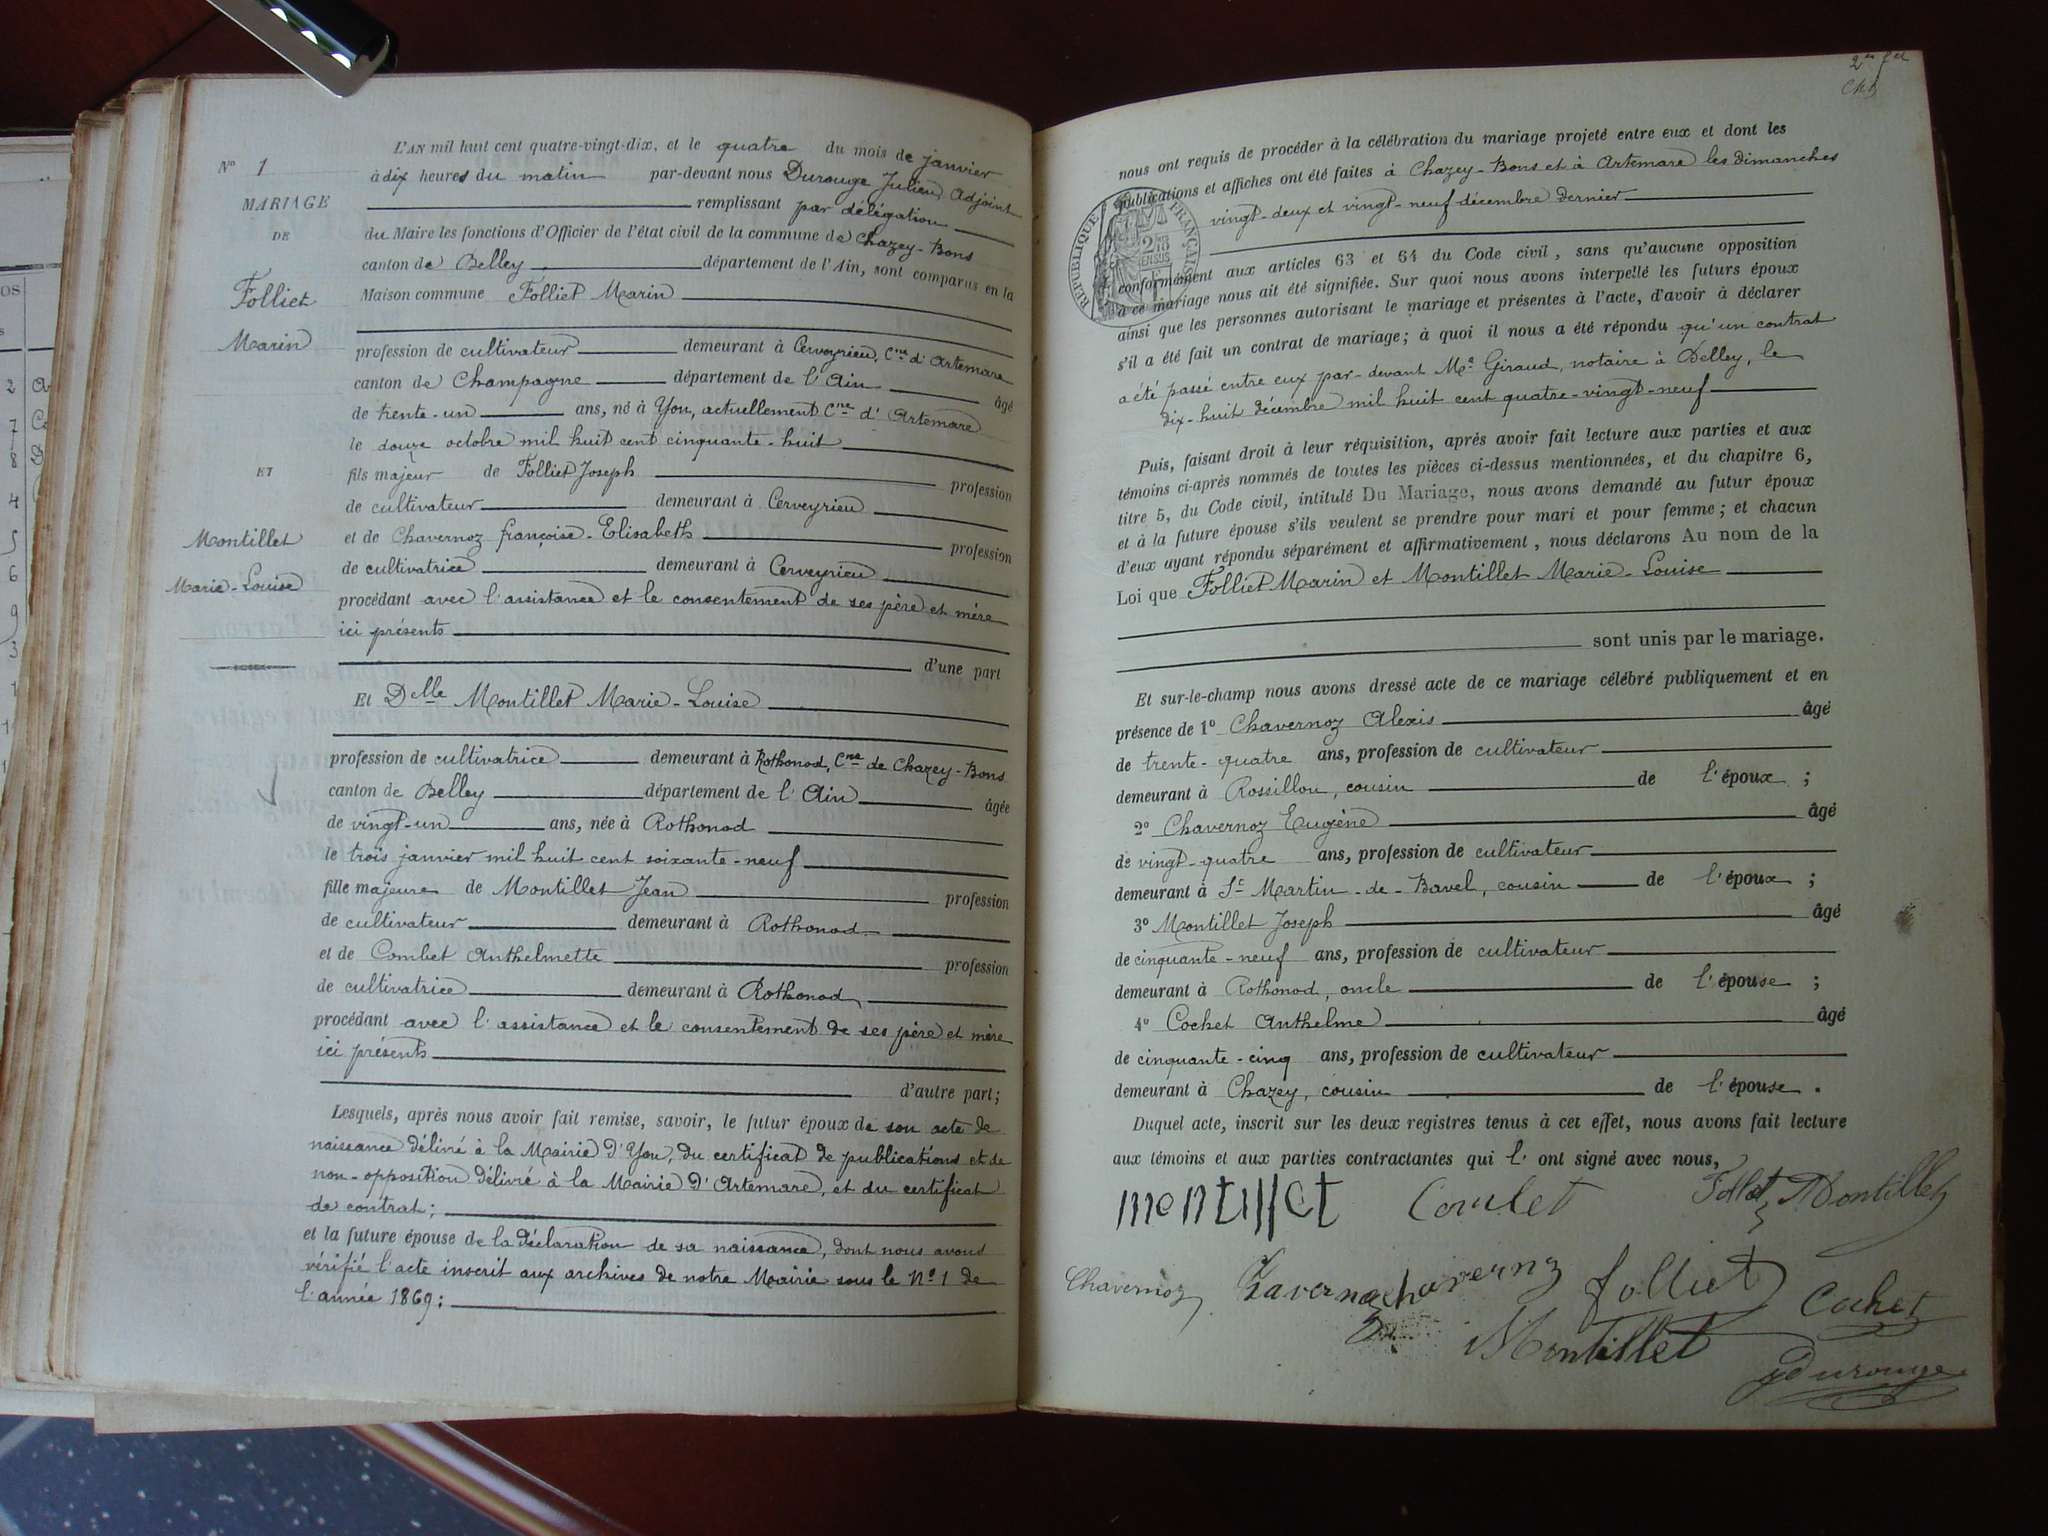 N° 1
MARIAGE
DE
Folliet
Marin
ET
Montillet
Marie-Louise
L'AN mil huit cent quatre-vingt-dix, et le quatre du mois de janvier
à dix heures du matin par-devant nous Durouge Julien, Adjoint
remplissant par délégation
du Maire les fonctions d'Officier de l'état civil de la commune de Chazey-Bons
canton de Belley département de l'Ain, sont comparus en la
Maison commune Folliet Marin
profession de cultivateur demeurant à Cerveyrieu, Cne d'Artemare
canton de Champagne département de l'Ain âgé
de trente-un ans, né à Yon, actuellement Cne d'Artemare
le douze octobre mil huit cent cinquante-huit
fils majeur de Folliet Joseph profession
de cultivateur demeurant à Cerveyrieu
et de Chavernoz françoise-Elisabeth profession
de cultivatrice demeurant à Cerveyrieu
procédant avec l'assistance et le consentement de ses père et mère
ici présents
d'une part
Et Delle Montillet Marie-Louise
profession de cultivatrice demeurant à Rothonod, Cne de Chazey-Bons
canton de Belley département de l'Ain âgée
de vingt-un ans, née à Rothonod
le trois janvier mil huit cent soixante-neuf
fille majeure de Montillet Jean profession
de cultivateur demeurant à Rothonod
et de Combet Anthelmette profession
de cultivatrice demeurant à Rothonod
procédant avec l'assistance et le consentement de ses père et mère
ici présents
d'autre part;
Lesquels, après nous avoir fait remise, savoir, le futur époux de son acte de
naissance délivré à la Mairie d'Yon, du certificat de publications et de
non-opposition délivré à la Mairie d'Artemare, et du certificat
de contrat;
et la future épouse de la déclaration de sa naissance, dont nous avons
vérifié l'acte inscrit aux archives de notre Mairie sous le N° 1 de
l'année 1869;
nous ont requis de procéder à la célébration du mariage projeté entre eux et dont les
publications et affiches ont été faites à Chazey-Bons et à Artemare les dimanches
vingt-deux et vingt-neuf décembre dernier
RÉPUBLIQUE FRANÇAISE
2/18 EN SUS
conformément aux articles 63 et 64 du Code civil, sans qu'aucune opposition
à ce mariage nous ait été signifiée. Sur quoi nous avons interpellé les futurs époux
ainsi que les personnes autorisant le mariage et présentes à l'acte, d'avoir à déclarer
s'il a été fait un contrat de mariage; à quoi il nous a été répondu qu'un contrat
a été passé entre eux par-devant Me Giraud, notaire à Belley, le
dix-huit décembre mil huit cent quatre-vingt-neuf
Puis, faisant droit à leur réquisition, après avoir fait lecture aux parties et aux
témoins ci-après nommés de toutes les pièces ci-dessus mentionnées, et du chapitre 6,
titre 5, du Code civil, intitulé Du Mariage, nous avons demandé au futur époux
et à la future épouse s'ils veulent se prendre pour mari et pour femme; et chacun
d'eux ayant répondu séparément et affirmativement, nous déclarons Au nom de la
Loi que Folliet Marin et Montillet Marie-Louise
sont unis par le mariage.
Et sur-le-champ nous avons dressé acte de ce mariage célébré publiquement et en
présence de 1° Chavernoz Alexis âgé
de trente-quatre ans, profession de cultivateur
demeurant à Rossillon, cousin de l'époux;
2° Chavernoz Eugène âgé
de vingt-quatre ans, profession de cultivateur
demeurant à St Martin-de-Bavel, cousin de l'époux;
3° Montillet Joseph âgé
de cinquante-neuf ans, profession de cultivateur
demeurant à Rothonod, oncle de l'épouse;
4° Cochet Anthelme âgé
de cinquante-cinq ans, profession de cultivateur
demeurant à Chazey, cousin de l'épouse.
Duquel acte, inscrit sur les deux registres tenus à cet effet, nous avons fait lecture
aux témoins et aux parties contractantes qui l'ont signé avec nous,
montillet Combet Folliet Montillet
Chavernoz chavernoz folliet Cochet
Montillet
Durouge